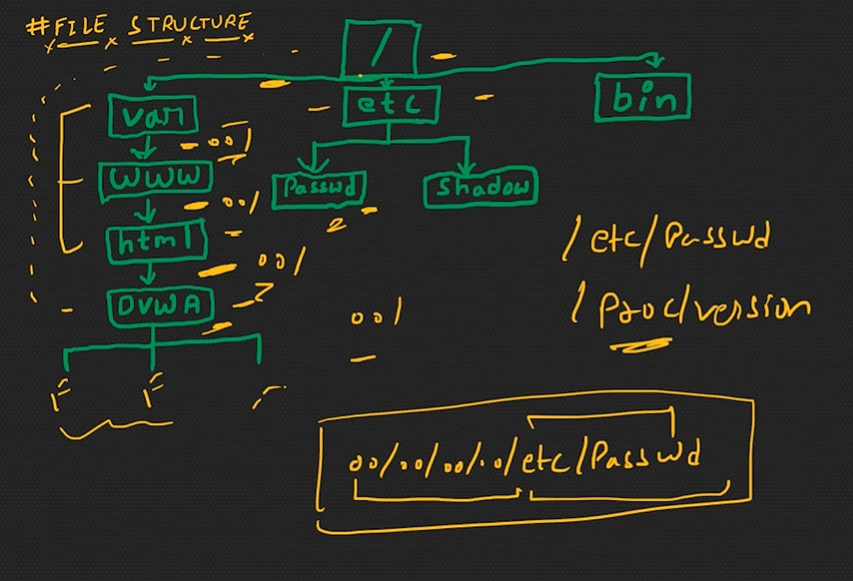 #FILE STRUCTURE
/
var
etc
bin
../
www
Passwd
Shadow
../
html
/etc/Passwd
../
DVWA
../
/Proc/version
F F
../../../../etc/Passwd